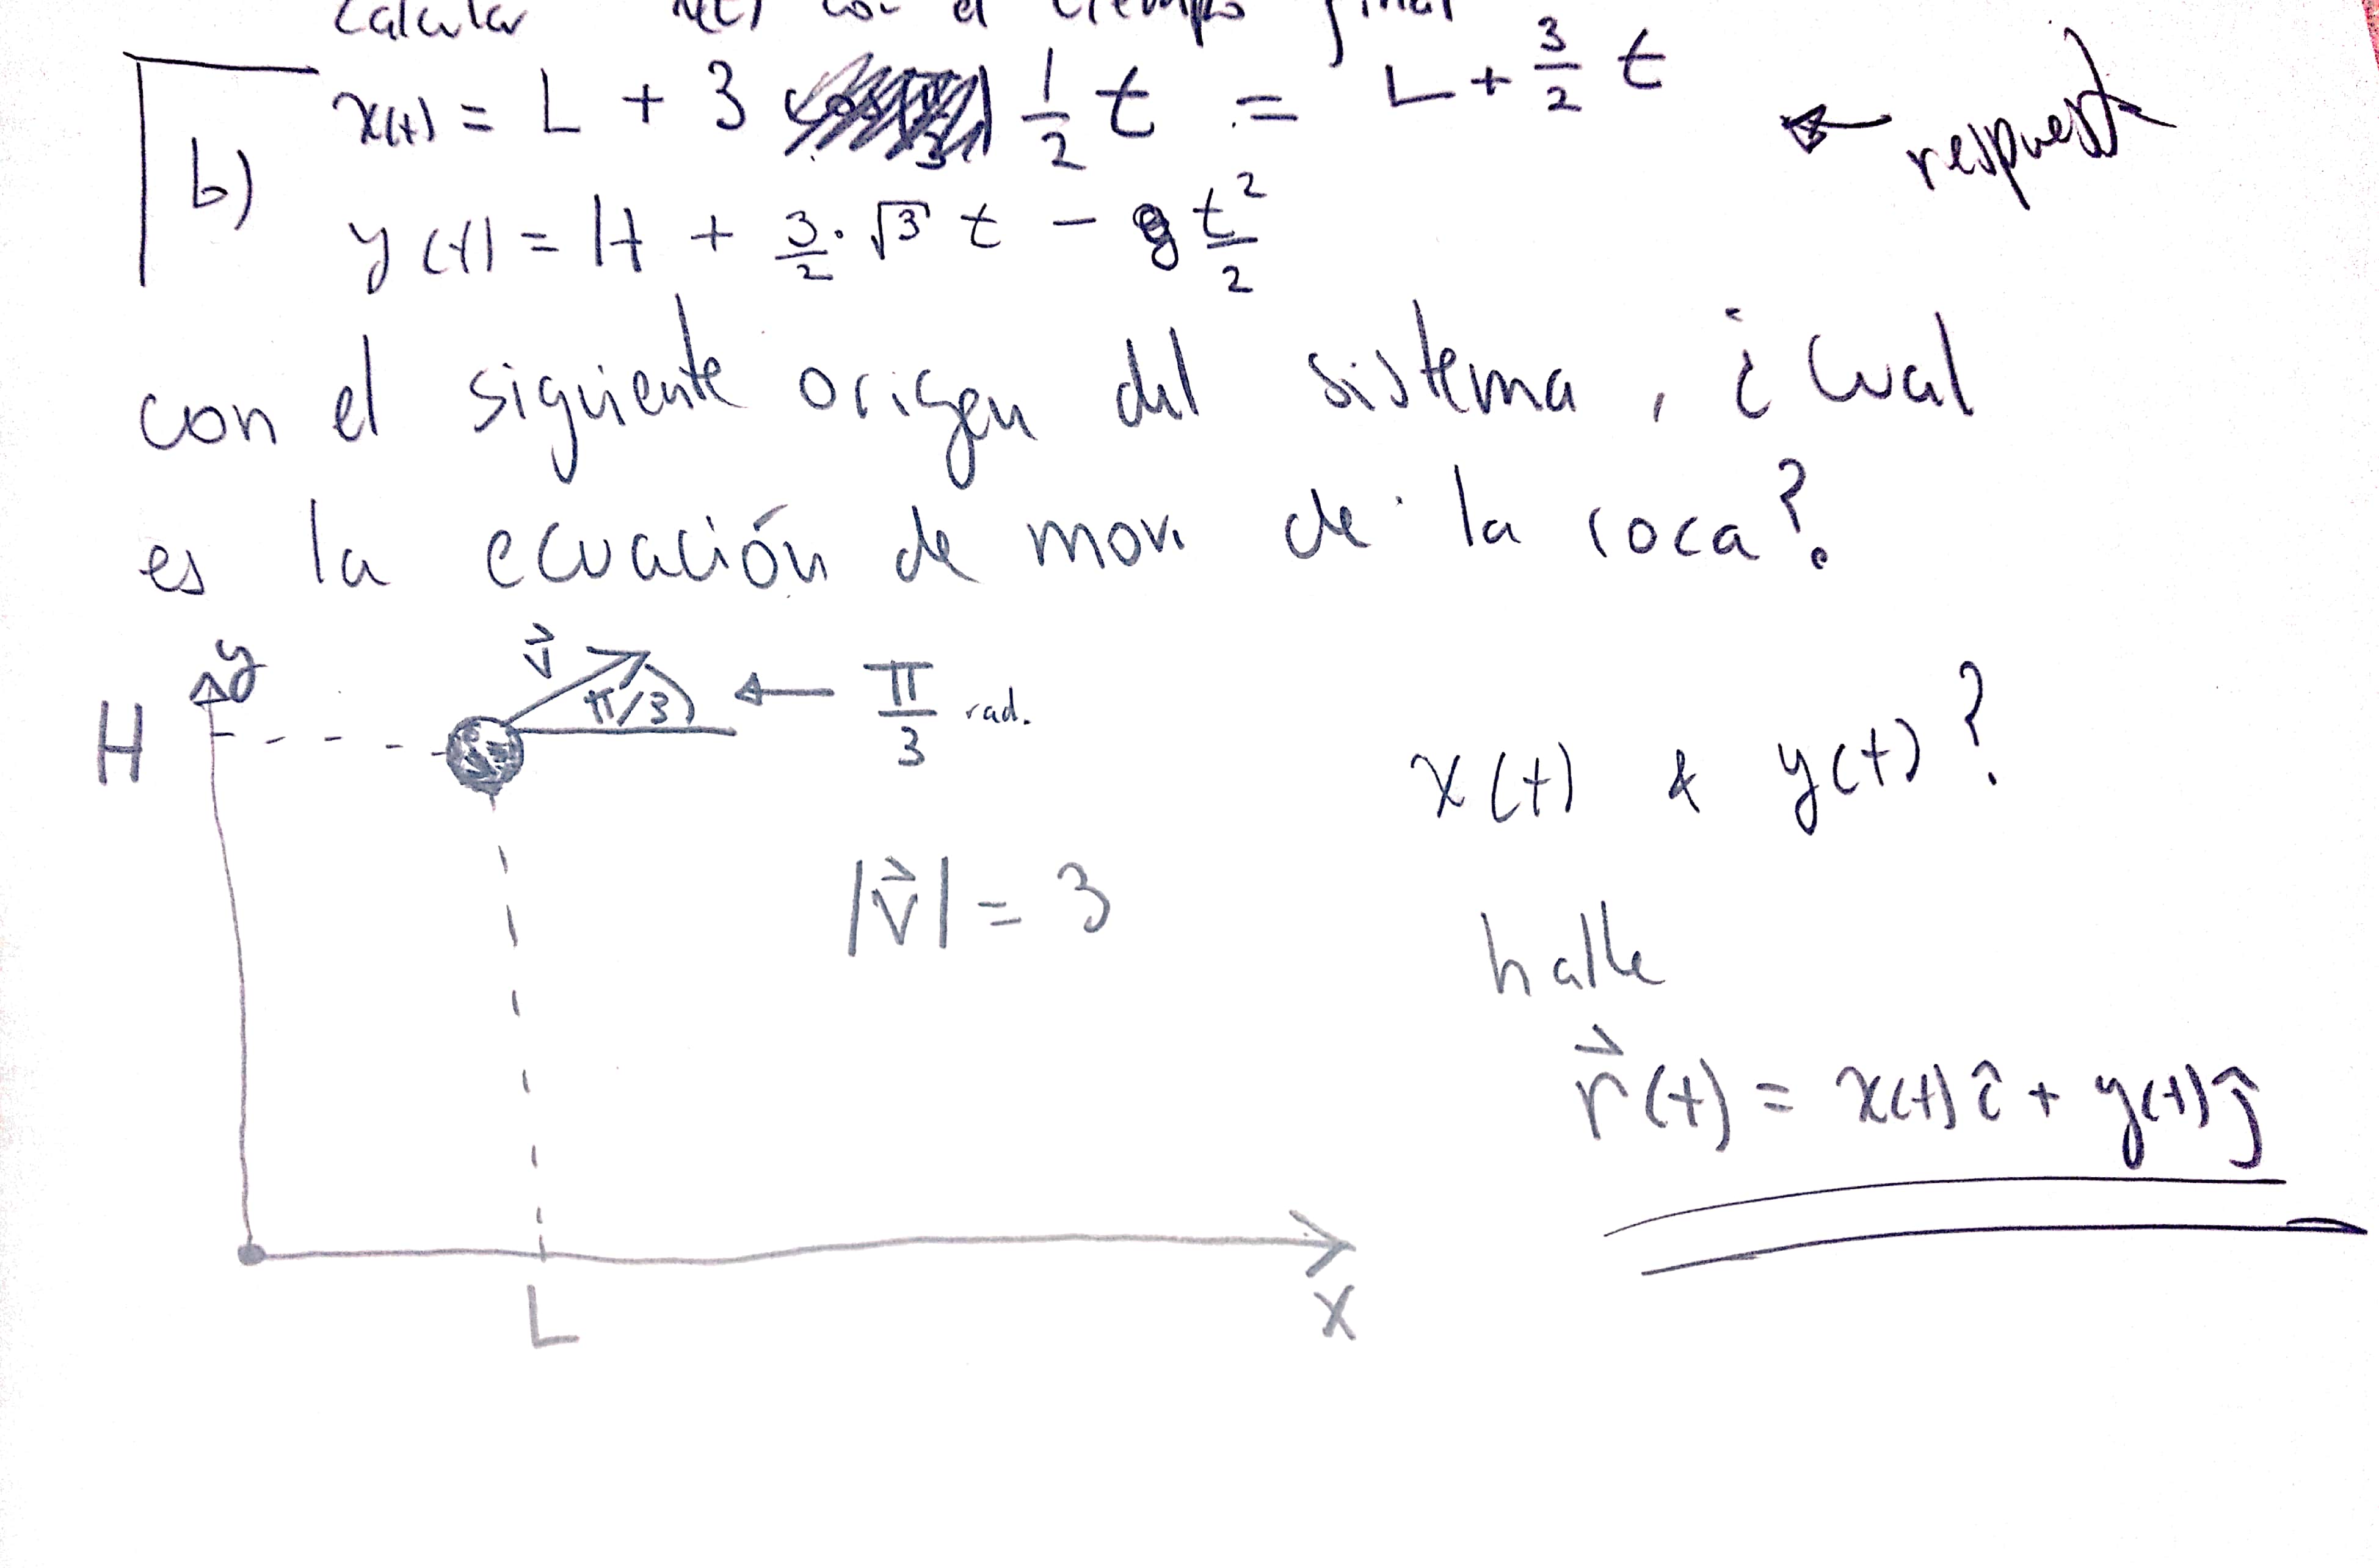 calcular x(t) con el tiempo final
x(t) = L + 3 1/2 t = L + 3/2 t ← respuesta
b)
y(t) = H + 3/2 · √3 t - g t²/2
con el siguiente origen del sistema, ¿Cual
es la ecuación de mov. de la roca?
y
v⃗
π/3 ← π/3 rad.
H
x(t) & y(t)?
|v⃗| = 3
halle
r⃗(t) = x(t) î + y(t) ĵ
L
X